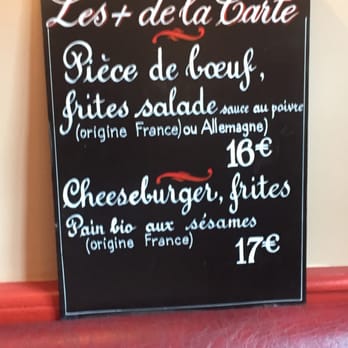 Les + de la Carte
Pièce de bœuf,
frites salade sauce au poivre
(origine France) ou Allemagne)
16€
Cheeseburger, frites
Pain bio aux sésames
(origine France)
17€